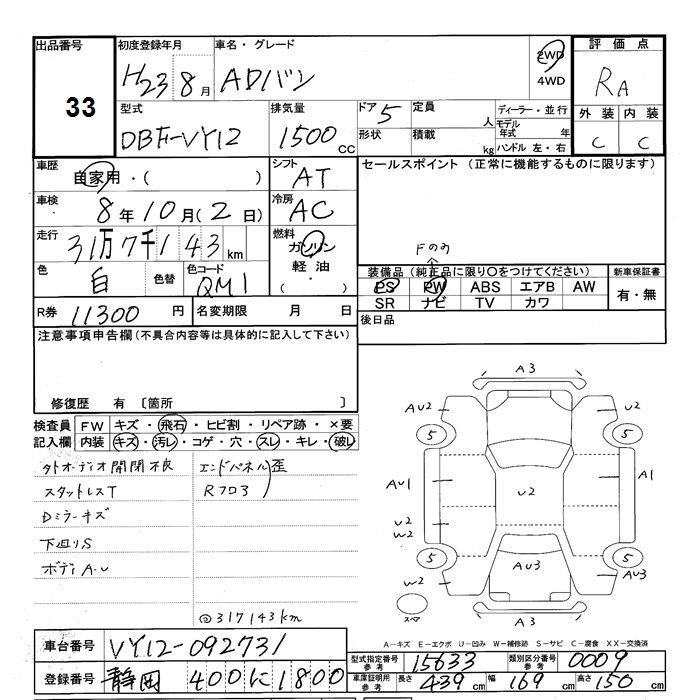 出品番号 初度登録年月 車名・グレード 2WD 評価点
33 H23 8月 ADバン 4WD RA
型式 排気量 ドア 5 定員 人 ディーラー・並行 外装 内装
DBF-VY12 1500 CC 形状 積載 kg モデル年式 年 C C
ハンドル 左・右
車歴 自家用・( ) シフト AT セールスポイント (正常に機能するものに限ります)
車検 8年10月(2日) 冷房 AC
走行 31万7千143km 燃料 ガソリン
軽油
( )
Fのみ
色 白 色替 色コード QM1 装備品(純正品に限り○をつけてください) 新車保証書
PS PW ABS エアB AW 有・無
SR ナビ TV カワ
R券 11300円 名変期限 月 日 後日品
注意事項申告欄(不具合内容等は具体的に記入して下さい)
修復歴 有 〔箇所 〕
検査員 FW キズ・飛石・ヒビ割・リペア跡・×要
記入欄 内装 キズ・汚レ・コゲ・穴・スレ・キレ・破レ
オーディオ開閉不良 エンドパネル歪
スタットレスT Rフロア
Dミラーキズ
下回りS
ボディA-U
◎317143km
A3
AU2 U2
5 5
AU1 U2 A1
U2
W2
5 5
W2 AU3 AU3
スペア A3
A-キズ E-エクボ U-凹み W-補修跡 S-サビ C-腐食 XX-交換済
車台番号 VY12-092731 型式指定番号 参考 15633 類別区分番号 参考 0009
登録番号 静岡 400 に 1800 車庫証明用 参考 長さ 439cm 幅 169cm 高さ 150cm